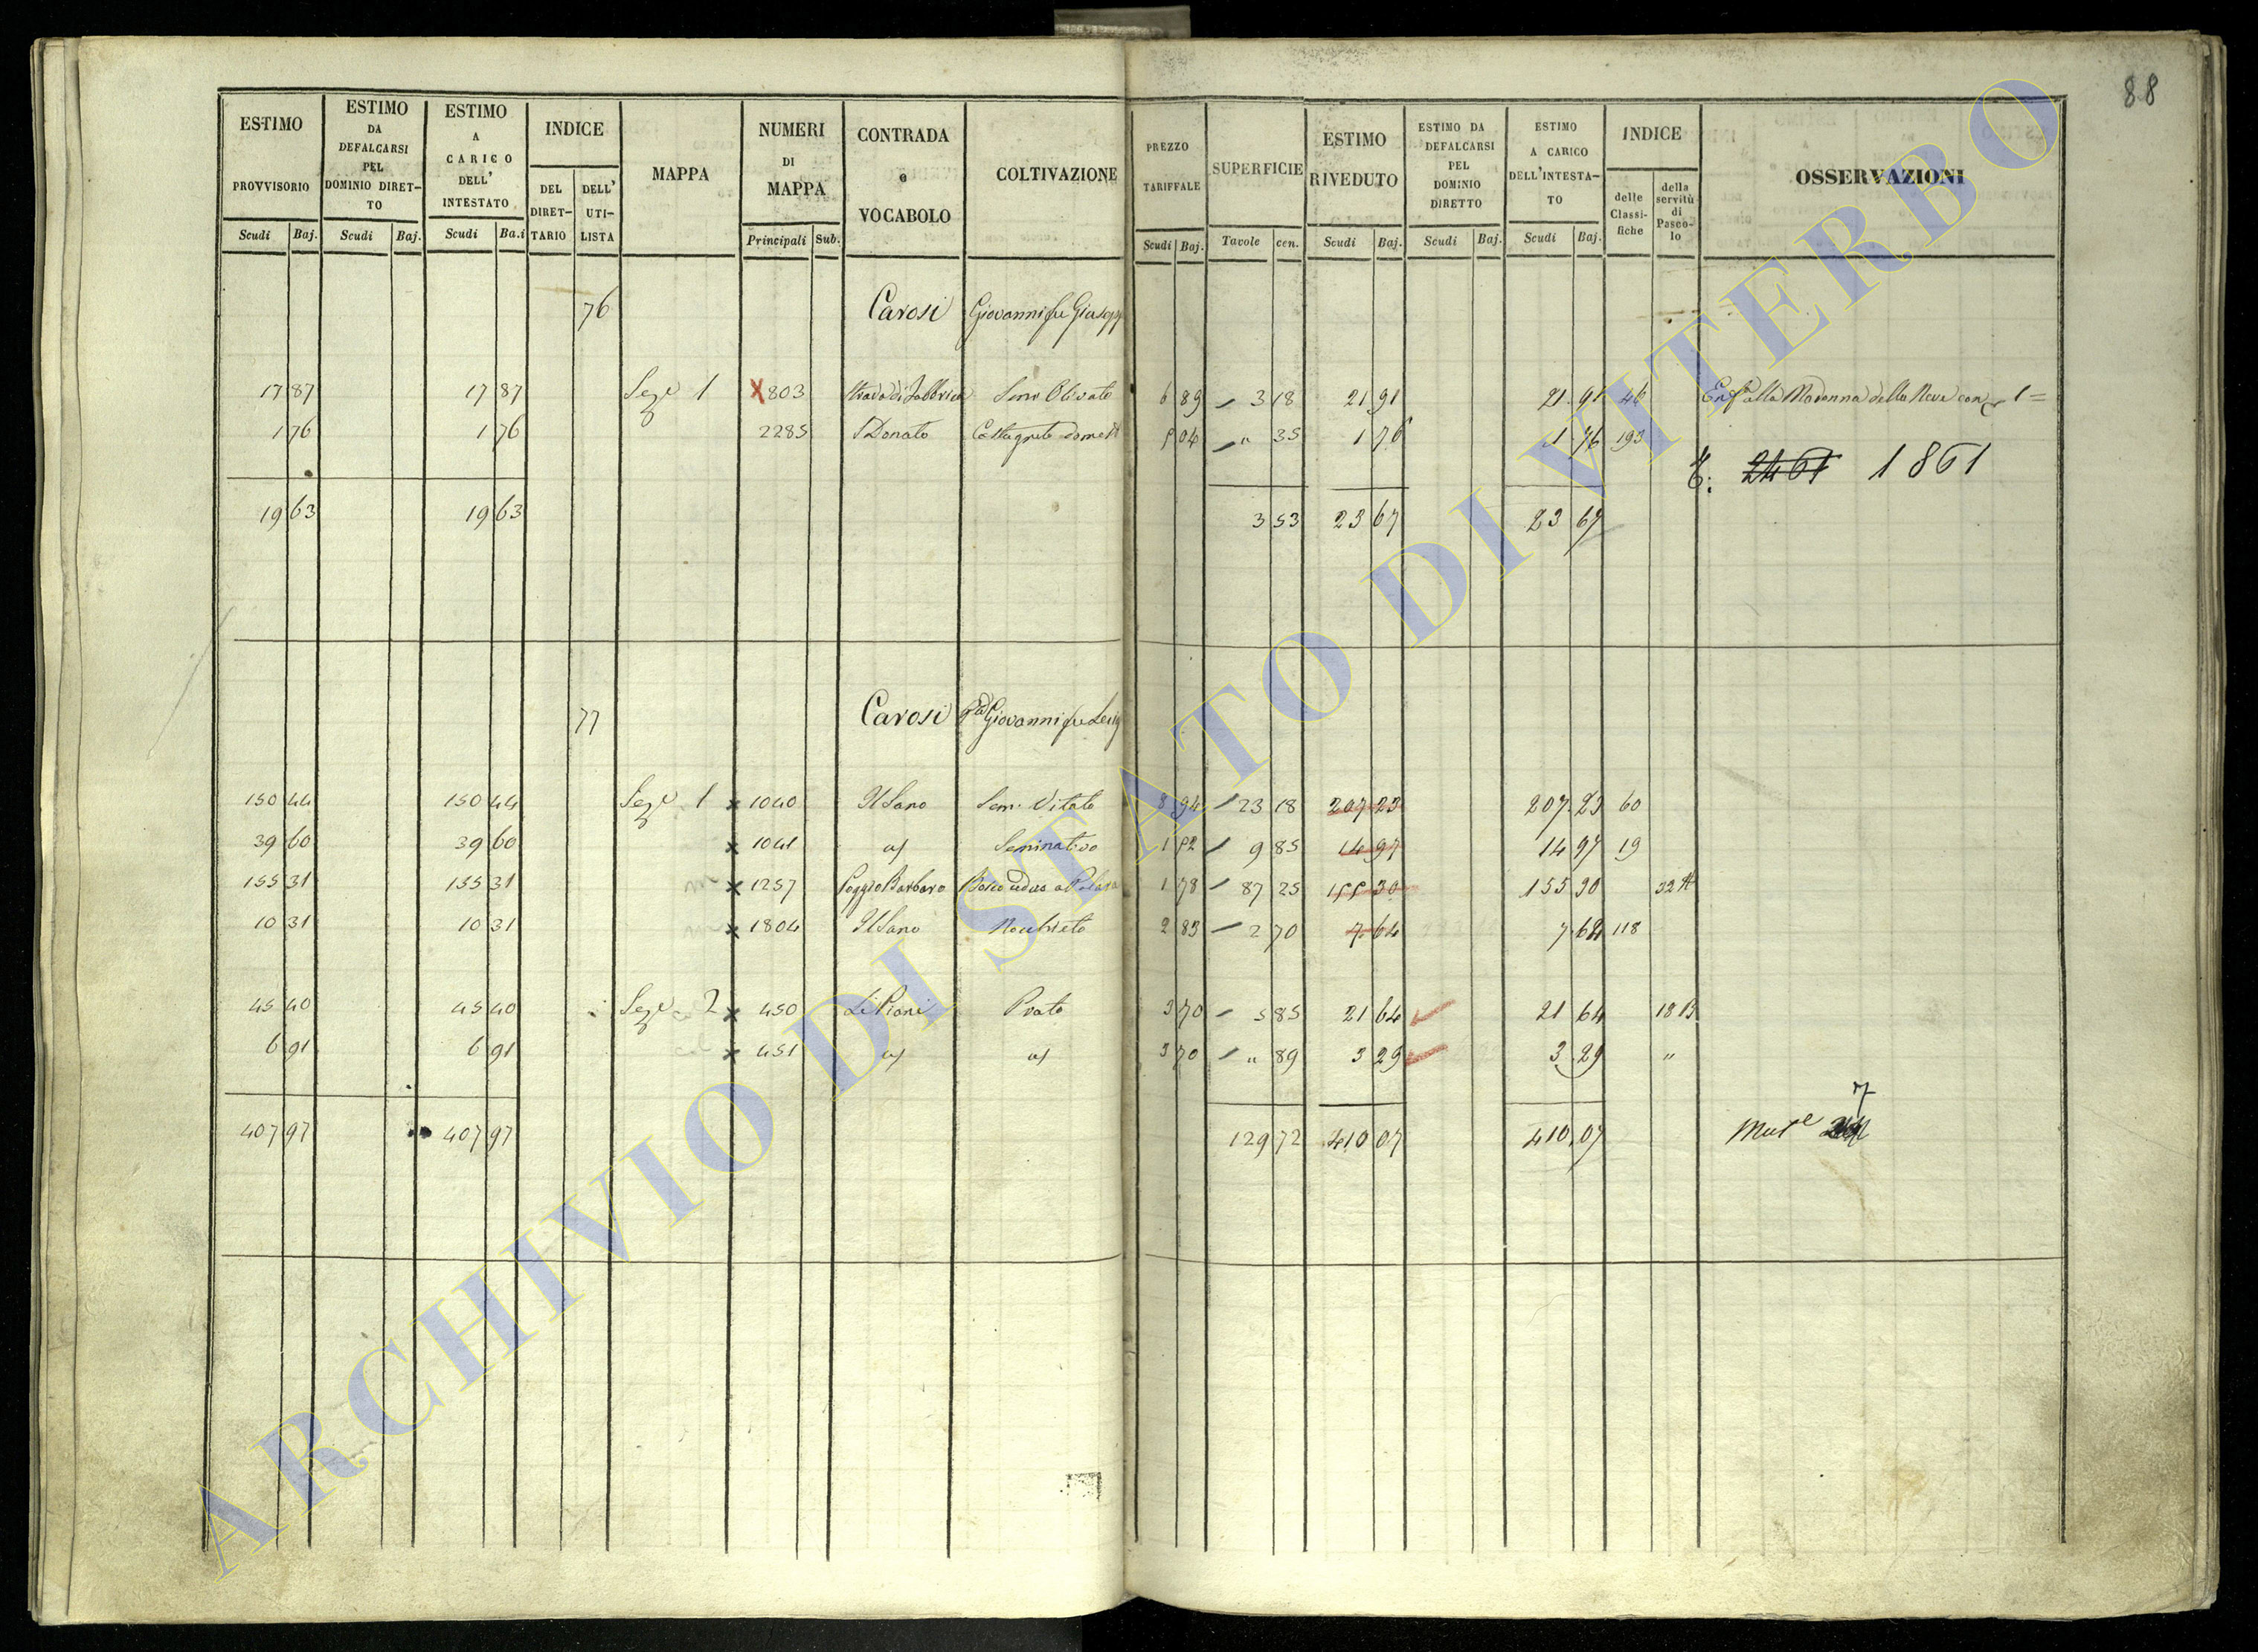 88
ESTIMO PROVVISORIO
ESTIMO DA DEFALCARSI PEL DOMINIO DIRETTO
ESTIMO A CARICO DELL' INTESTATO
INDICE
DEL DIRETTARIO
DELL' UTILISTA
MAPPA
NUMERI DI MAPPA
CONTRADA e VOCABOLO
COLTIVAZIONE
PREZZO TARIFFALE
SUPERFICIE
ESTIMO RIVEDUTO
ESTIMO DA DEFALCARSI PEL DOMINIO DIRETTO
ESTIMO A CARICO DELL'INTESTATO
INDICE
delle Classifiche
della servitù di Pascolo
OSSERVAZIONI
Scudi Baj. Scudi Baj. Scudi Ba.i Principali Sub. Scudi Baj. Tavole cen. Scudi Baj. Scudi Baj. Scudi Baj.
76 Carosi Giovanni fu Giusepp
17 87 17 87 Sez.e 1 X 803 Strada di Fabbrica Sem Olivato 6 89 3 18 21 91 21 91 46 alla Madonna della Neve 1 =
1 76 1 76 2285 S Donato Castagneto domest 5 04 " 35 1 76 1 76 193
E. 2461 1861
19 63 19 63 3 53 23 67 23 67
77 Carosi Giovanni fu Luig
150 44 150 44 Sez.e 1 x 1040 Il Sano Sem. Vitato 8 94 23 18 207 23 207 23 60
39 60 39 60 x 1041 Seminativo 1 52 9 85 14 97 14 97 19
155 31 155 31 x 1257 Poggio Barbaro Bosco ceduo 1 78 87 25 155 30 155 30 32
10 31 10 31 x 1804 Il Sano 2 83 2 70 7 64 7 64 118
45 40 45 40 Sez.e 2 x 450 Li Piani Prato 3 70 5 85 21 64 21 64 18 B
6 91 6 91 x 451 3 70 " 89 3 29 3 29 "
407 97 407 97 129 72 410 07 410 07 7
ARCHIVIO DI STATO DI VITERBO